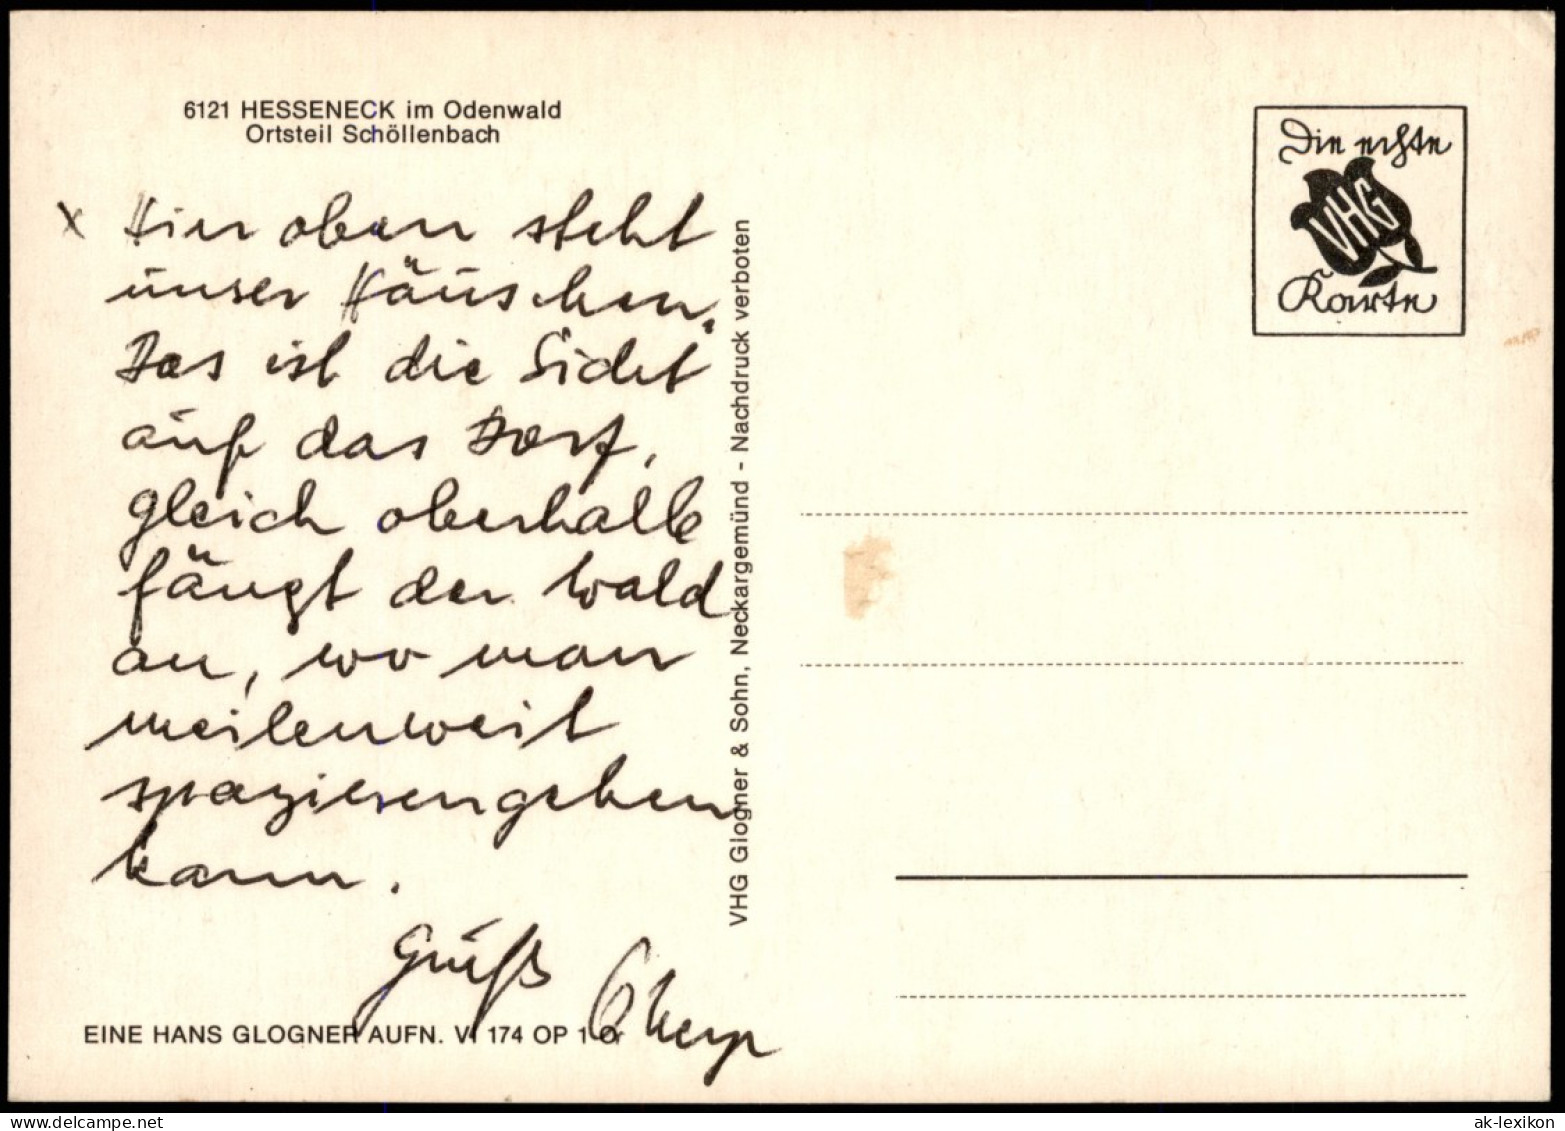 6121 HESSENECK im Odenwald
Ortsteil Schöllenbach
x Hier oben steht
unser Häuschen.
Das ist die Sicht
auf das Dorf,
gleich oberhalb
fängt der Wald
an, wo man
meilenweit
spazierengehen
kann.
Gruß
EINE HANS GLOGNER AUFN. VI 174 OP 1 O
VHG Glogner & Sohn, Neckargemünd - Nachdruck verboten
Die echte
VHG
Karte
ak-lexikon